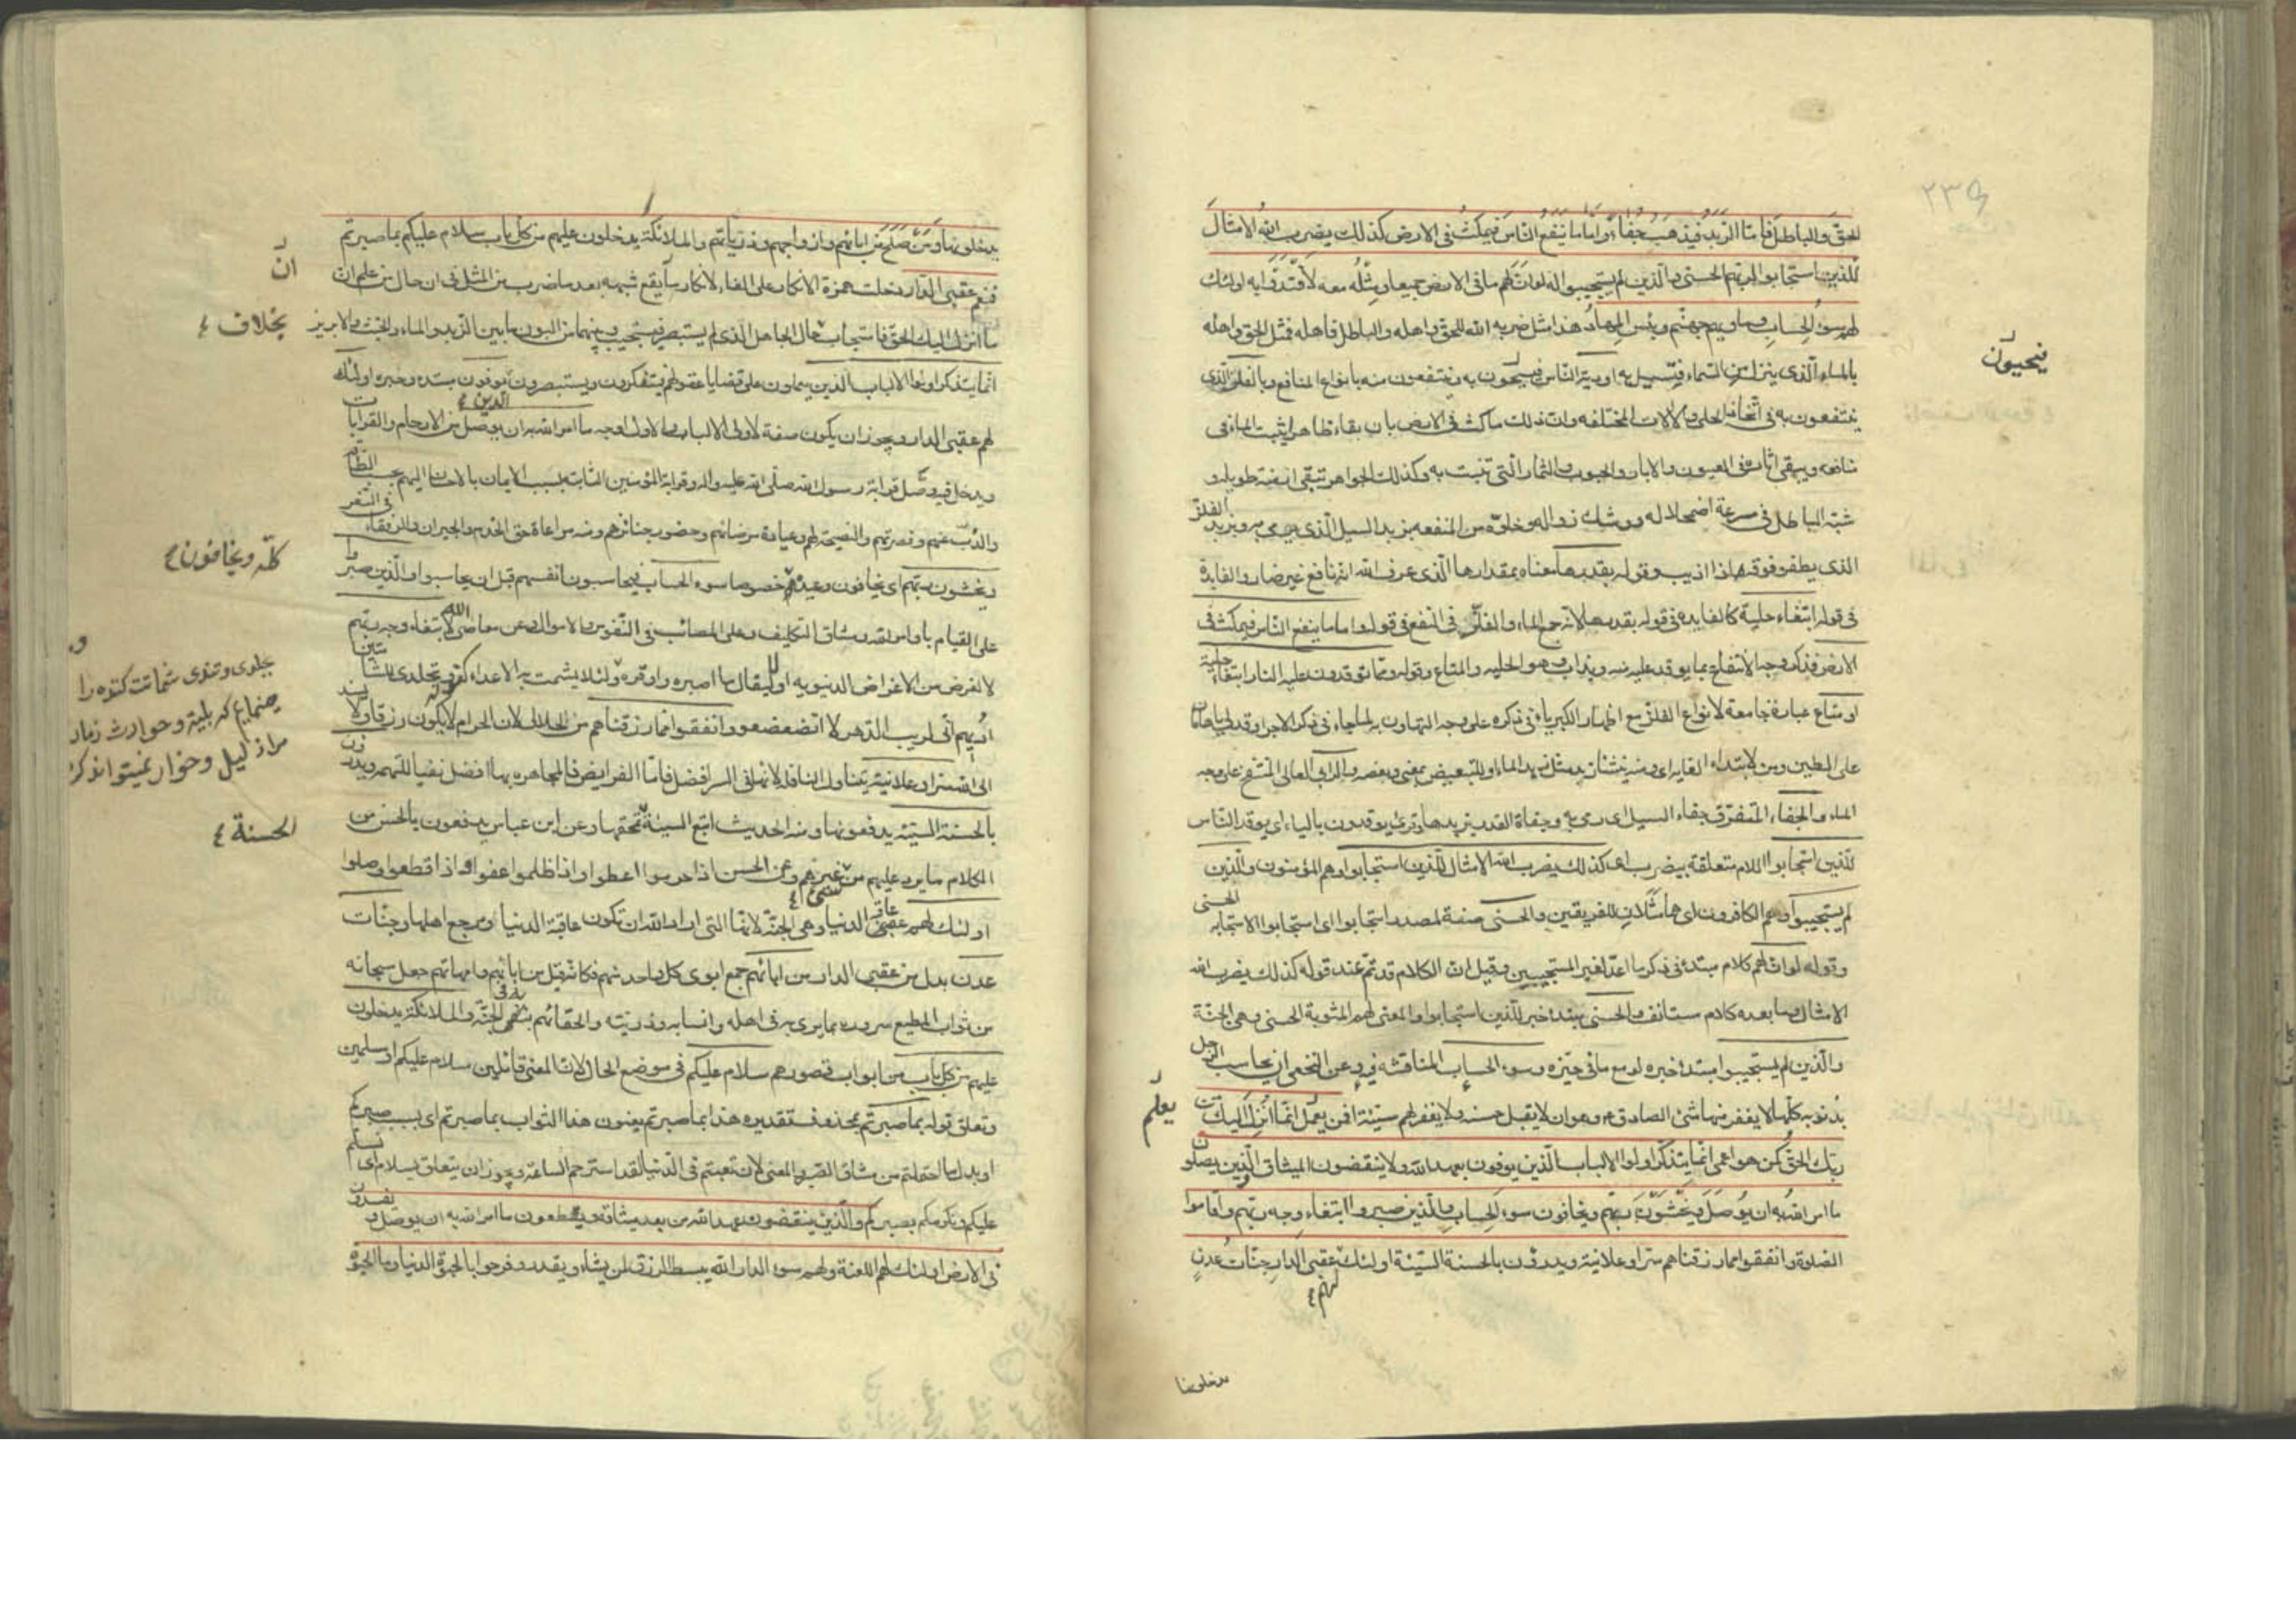 الحقّ والباطل فامّا الزّبد فيذهب جفاءً وامّا ما ينفع النّاس فيمكث فى الارض كذلك يضرب الله الامثال
للّذين استجابوا لربّهم الحسنى والّذين لم يستجيبوا له لو انّ لهم ما فى الارض جميعا ومثله معه لافتدوا به اولئك
لهم سوء الحساب وماويهم جهنّم وبئس المهاد هذا مثل ضربه الله للحقّ واهله والباطل واهله فمثل الحق واهله
بالماء الّذى ينزل من السّماء فتسيل به اودية النّاس فيحيون به وينتفعون منه بانواع المنافع وبالفلزّ الذى
ينتفعون به فى اتّخاذ الحلى والالات المختلفه وان ذلك ماكث فى الارض باق بقاء ظاهرا يثبت الماء فى
منافعه ويبقى اثاره فى العيون والابار والحبوب والثمار الّتى تنبت به وكذلك الجواهر تبقى ازمنة طويله و
شبّه الباطل فى سرعة اضمحلاله ووشك زواله وخلوّه من المنفعه بزبد السيل الّذى يرمى به وبزبد الفلزّ
الذى يطفو فوقه اذا اذيب وقوله بقدرها معناه بمقدارها الّذى عرف الله انّه نافع غير ضار والفايدة
فى قوله ابتغاء حلية كالفايده فى قوله بقدرها لانه جمع الماء والفلزّ فى النفع فى قوله واما ما ينفع النّاس فيمكث فى
الارض فذكر وجه الانتفاع بما يوقد عليه منه ويذاب وهو الحليه والمتاع وقوله وممّا توقدون عليه فى النار ابتغاء حلية
او متاع عبارة جامعة لانواع الفلزّ مع اظهار الكبرياء فى ذكره على وجه التهاون به كما جاء فى ذكر الاجر اوقد لى يا هامان
على الطين ومن لابتداء الغايه اى ومنه ينشأ زبد مثل زبد الماء او للتبعيض بمعنى وبعضه والرابى العالى المنتفخ على وجه
الماء والجفاء المتفرّق جفاه السيل اى رمى به وجفاة القدر بزبدها وقرئ يوقدون بالياء اى يوقد النّاس
للّذين استجابوا اللام متعلقة بيضرب اى كذلك يضرب الله الامثال للّذين استجابوا وهم المؤمنون والّذين
لم يستجيبوا وهم الكافرون اى هما مثلان للفريقين والحسنى صفة لمصدر استجابوا اى استجابوا الاستجابه الحسنى
وقوله لو ان لهم كلام مبتدئ فى ذكر ما اعدّ لغير المستجيبين وقيل انّ الكلام قد تمّ عند قوله كذلك يضرب الله
الامثال وما بعده كلام مستانف والحسنى مبتداء خبره للّذين استجابوا والمعنى لهم المثوبة الحسنى وهى الجنّة
والّذين لم يستجيبوا مبتداء خبره لو مع ما فى حيّزه وسوء الحساب المناقشه فيه وعن النخعى ان يحاسب الرّجل
بذنوبه كلّها لا يغفر منها شئ الصادق ع وهو ان لا يقبل حسنه ولا يغفر لهم سيّئة افمن يعلم انّما انزل اليك من
ربّك الحقّ كمن هو اعمى انّما يتذكّر اولوا الالباب الّذين يوفون بعهد الله ولا ينقضون الميثاق والّذين يصلون
ما امر الله به ان يوصل ويخشون ربّهم ويخافون سوء الحساب والّذين صبروا ابتغاء وجه ربّهم واقاموا
الصّلوة وانفقوا ممّا رزقناهم سرّا وعلانية ويدرؤن بالحسنة السّيّئة اولئك لهم عقبى الدار جنّات عدن
يدخلونها
فيحيون
يعلم
٢٣٥
يدخلونها ومن صلح من ابائهم وازواجهم وذرّيّاتهم والملائكة يدخلون عليهم من كلّ باب سلام عليكم بما صبرتم
فنعم عقبى الدّار دخلت همزة الانكار على الفاء لانكار ان يقع شبهه بعد ما ضرب من المثل فى ان حال من علم ان
ما انزل اليك الحقّ فاستجاب بخلاف حال الجاهل الّذى لم يستبصر فيستجيب وبينهما من البون ما بين الزبد والماء والخبث والابريز
انّما يتذكر اولوا الالباب الّذين يعملون على قضايا عقولهم فيتفكرون ويستبصرون الّذين يوفون مبتداء وخبره اولئك
لهم عقبى الدار ويجوز ان يكون صفة لاولى الالباب والاول اوجه ما امر الله به ان يوصل من الارحام والقرابات
ويدخل فيه وصل قرابة رسول الله صلّى الله عليه واله وقرابة المؤمنين الثابته بسبب الايمان بالاحسان اليهم بحسب الطّاقة
والذّبّ عنهم ونصرتهم والنصيحة لهم وعيادة مرضاهم وحضور جنائزهم ومنه مراعاة حق الخدم والجيران والرفقاء فى السّفر
ويخشون ربّهم اى يخافون وعيده كلّه ويخافون خصوصا سوء الحساب فيحاسبون انفسهم قبل ان يحاسبوا والّذين صبروا
على القيام باوامر الله ومشاق التكاليف وعلى المصائب فى النّفوس والاموال وعن معاصى الله ابتغاء وجه ربّهم
لا لغرض من الاغراض الدنيويه او ليقال ما اصبره واوقره ولئلا يشمت به الاعداء كقوله وتجلّدى للشامتين
اريهم انّى لريب الدّهر لا اتضعضع وانفقوا ممّا رزقناهم من الحلال لان الحرام لا يكون رزقا ولا يسند
الى الله سرّا وعلانية يتناول النافلة لانها فى السر افضل فامّا الفرايض فالمجاهره بها افضل نفيا للتهمه ويدرؤن
بالحسنة السّيّئة يدفعونها ومنه الحديث اتبع السيئة الحسنة تمحها وعن ابن عباس يدفعون بالحسن من
الكلام ما يرد عليهم من سئ غيرهم وعن الحسن اذا حرموا اعطوا واذا ظلموا عفوا واذا قطعوا وصلوا
اولئك لهم عقبى الدار عاقبة الدنيا وهى الجنّة لانّها الّتى اراد الله ان تكون عاقبة الدنيا ومرجع اهلها وجنّات
عدن بدل من عقبى الدار من ابائهم جمع ابوى كل واحد منهم فكانه قيل من ابائهم وامهاتهم جعل سبحانه
من ثواب المطيع سروره بما يرى به فى اهله وانسابه وذريته والحقائهم به فى الجنّة والملائكة يدخلون
عليهم من كلّ باب من ابواب قصورهم سلام عليكم فى موضع الحال لانّ المعنى قائلين سلام عليكم او مسلمين
وتعلق قوله بما صبرتم بمحذوف تقديره هذا بما صبرتم يعنون هذا الثواب بما صبرتم اى بسبب صبركم
او بدل ما احتملتم من مشاق الصّبر والمعنى لان تعبتم فى الدّنيا لقد استرحتم الساعة ويجوز ان يتعلق بسلام اى نسلّم
عليكم ونكرمكم بصبركم والّذين ينقضون عهد الله من بعد ميثاقه ويقطعون ما امر الله به ان يوصل ويفسدون
فى الارض اولئك لهم اللعنة ولهم سوء الدار الله يبسط الرزق لمن يشاء ويقدر وفرحوا بالحيوة الدنيا وما الحيوة
انّ
بخلاف
كلّه ويخافون
الحسنة